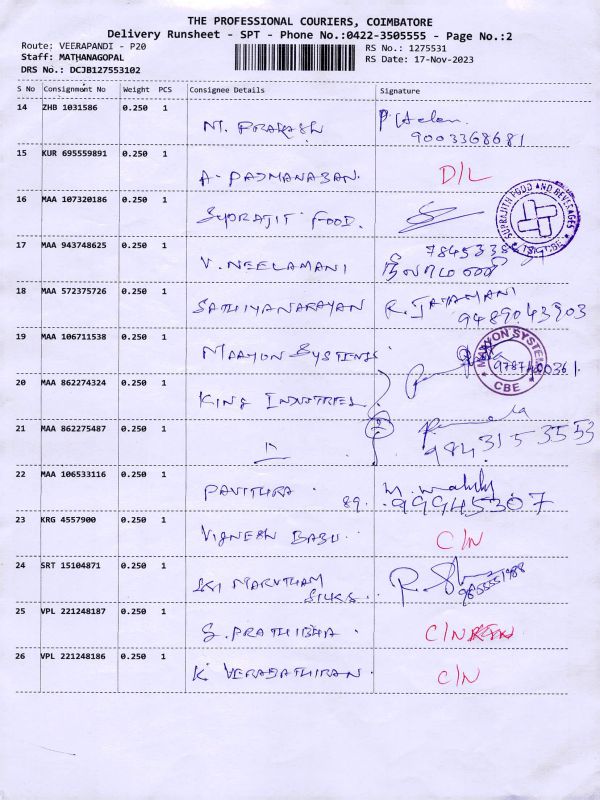 THE PROFESSIONAL COURIERS, COIMBATORE
Delivery Runsheet - SPT - Phone No.:0422-3505555 - Page No.:2
Route: VEERAPANDI - P20
RS No.: 1275531
Staff: MATHANAGOPAL
RS Date: 17-Nov-2023
DRS No.: DCJB127553102
S No Consignment No Weight PCS Consignee Details Signature
14 ZHB 1031586 0.250 1
P. Helan
M. PRAKASH
9003368681
15 KUR 695559891 0.250 1
A. PADMANABAN. D/L
16 MAA 107320186 0.250 1
SUPRAJIT FOOD.
SUPRAJITH FOOD AND BEVERAGES
17 MAA 943748625 0.250 1
V. NEELAMANI நீலாமணி
18 MAA 572375726 0.250 1
SATHIYANARAYAN R. JAYAMANI
9489043903
19 MAA 106711538 0.250 1
MAAYON SYSTEMS
MAAYON SYSTEMS CBE
20 MAA 862274324 0.250 1
KING INDUSTRIES
21 MAA 862275487 0.250 1
9843153553
22 MAA 106533116 0.250 1
PAVITHRA
89. 99945307
23 KRG 4557900 0.250 1
VIGNESH BABU. C/N
24 SRT 15104871 0.250 1
SRI MARUTHAM
SILKS.
25 VPL 221248187 0.250 1
S. PRATHIBHA. C/N
26 VPL 221248186 0.250 1
K. VERABATHIRAN. C/N